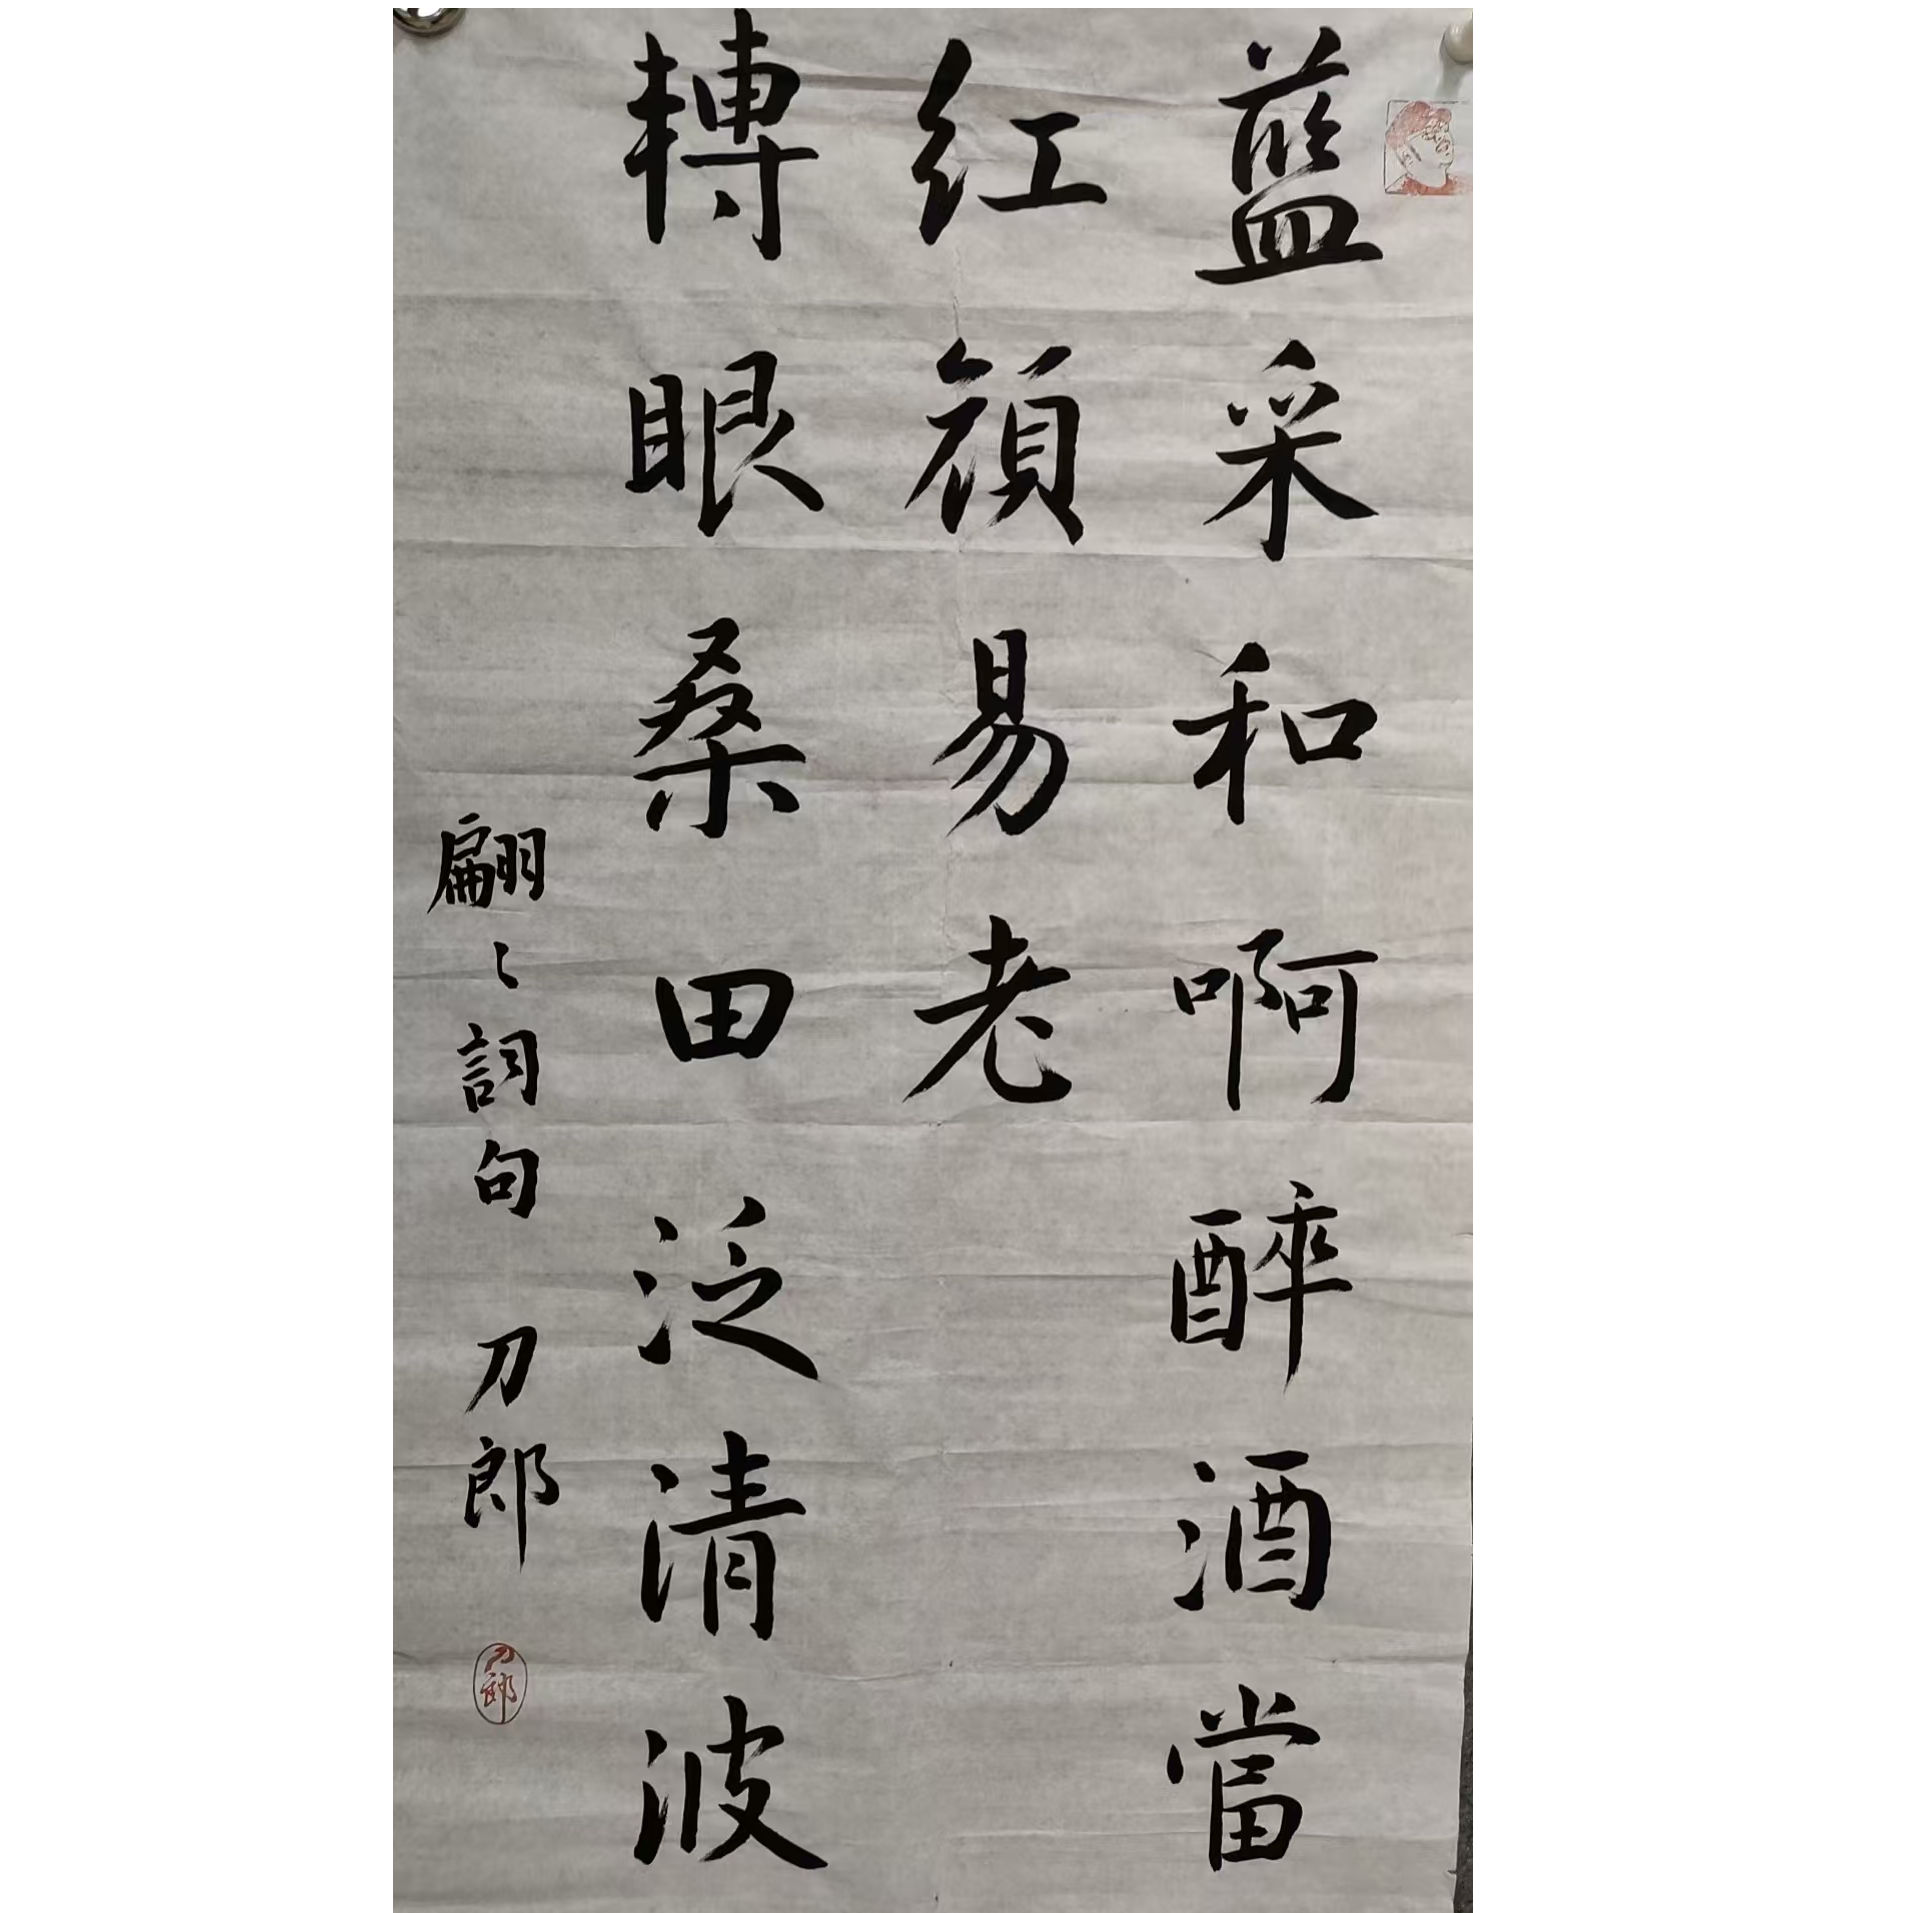 藍采和啊醉酒當
红顔易老
轉眼桑田泛清波
翩〻詞句 刀郎
刀郎